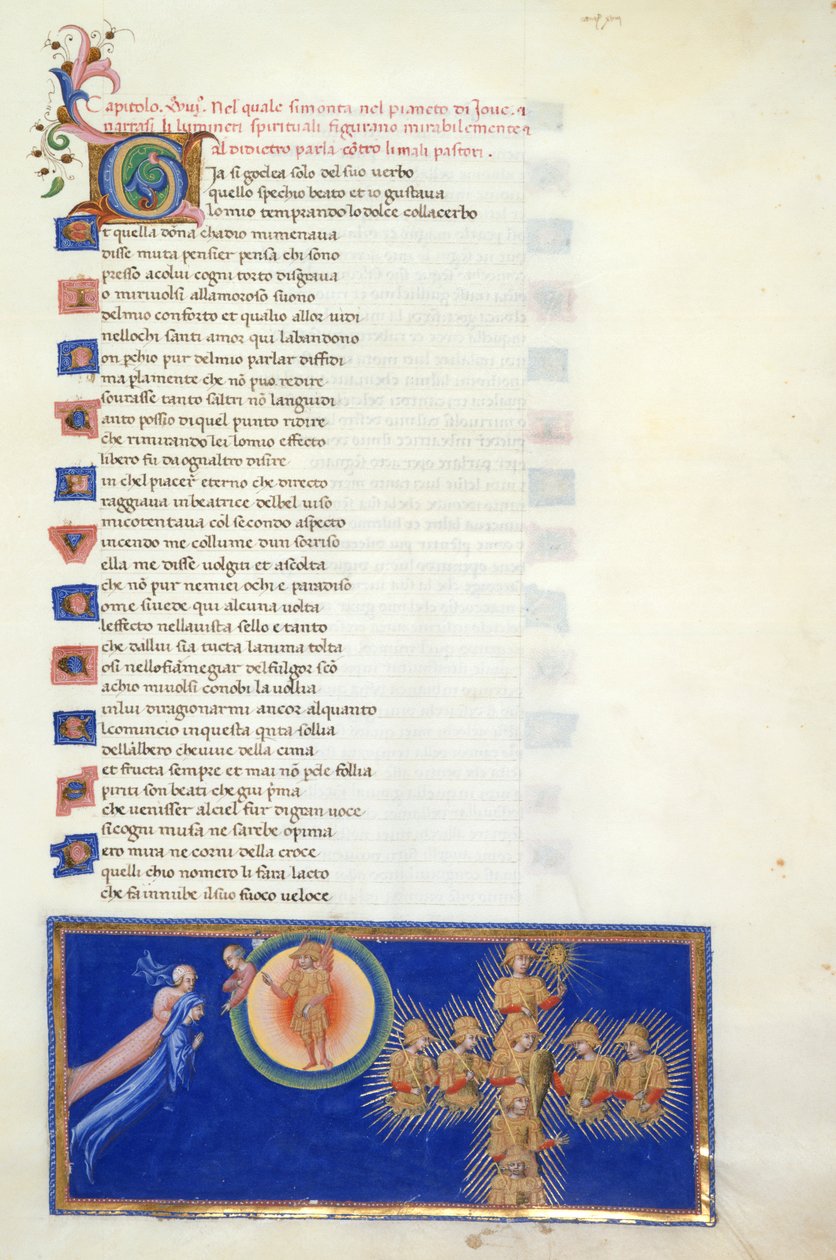 Capitolo. xviij. Nel quale si monta nel pianeto di Jove. &
narrasi li lumineti spirituali figurano mirabilemente &
al didietro parla cōtro li mali pastori.
Gia si godea solo del suo verbo
quello spechio beato et io gustava
lo mio temprando lo dolce collacerbo
Et quella dōna chadio mi menava
disse muta pensier pensa chi sono
presso acolui cogni torto disgrava
Io mi rivolsi allamoroso suono
del mio conforto et qualio allor vidi
nellochi santi amor qui labandono
Non pchio pur del mio parlar diffidi
ma p lamente che nō puo redire
sovrasse tanto saltri nō la guidi
Tanto possio di quel punto ridire
che rimirando lei lo mio effecto
libero fu da ognaltro disire
Fin chel piacer eterno che directo
raggiava in beatrice del bel viso
mi cōtentava col secondo aspecto
Vincendo me col lume dun sorriso
ella me disse volgiti et ascolta
che nō pur nemiei ochi e paradiso
Come si vede qui alcuna volta
leffecto nella vista sello e tanto
che dallui sia tucta lanima tolta
Cosi nello fiāmegiar del fulgor scō
achio mi volsi conobi la vollia
in lui di ragionarmi ancor alquanto
El comincio in questa qnta sollia
dellalbero che vive della cima
et fructa sempre et mai nō pde follia
Spiriti son beati che giu pma
che venisser al ciel fur di gran voce
si cogni musa ne sarebe opima
Pero mira ne corni della croce
quelli chio nomero li fara lacto
che fa in nube il suo fuoco veloce